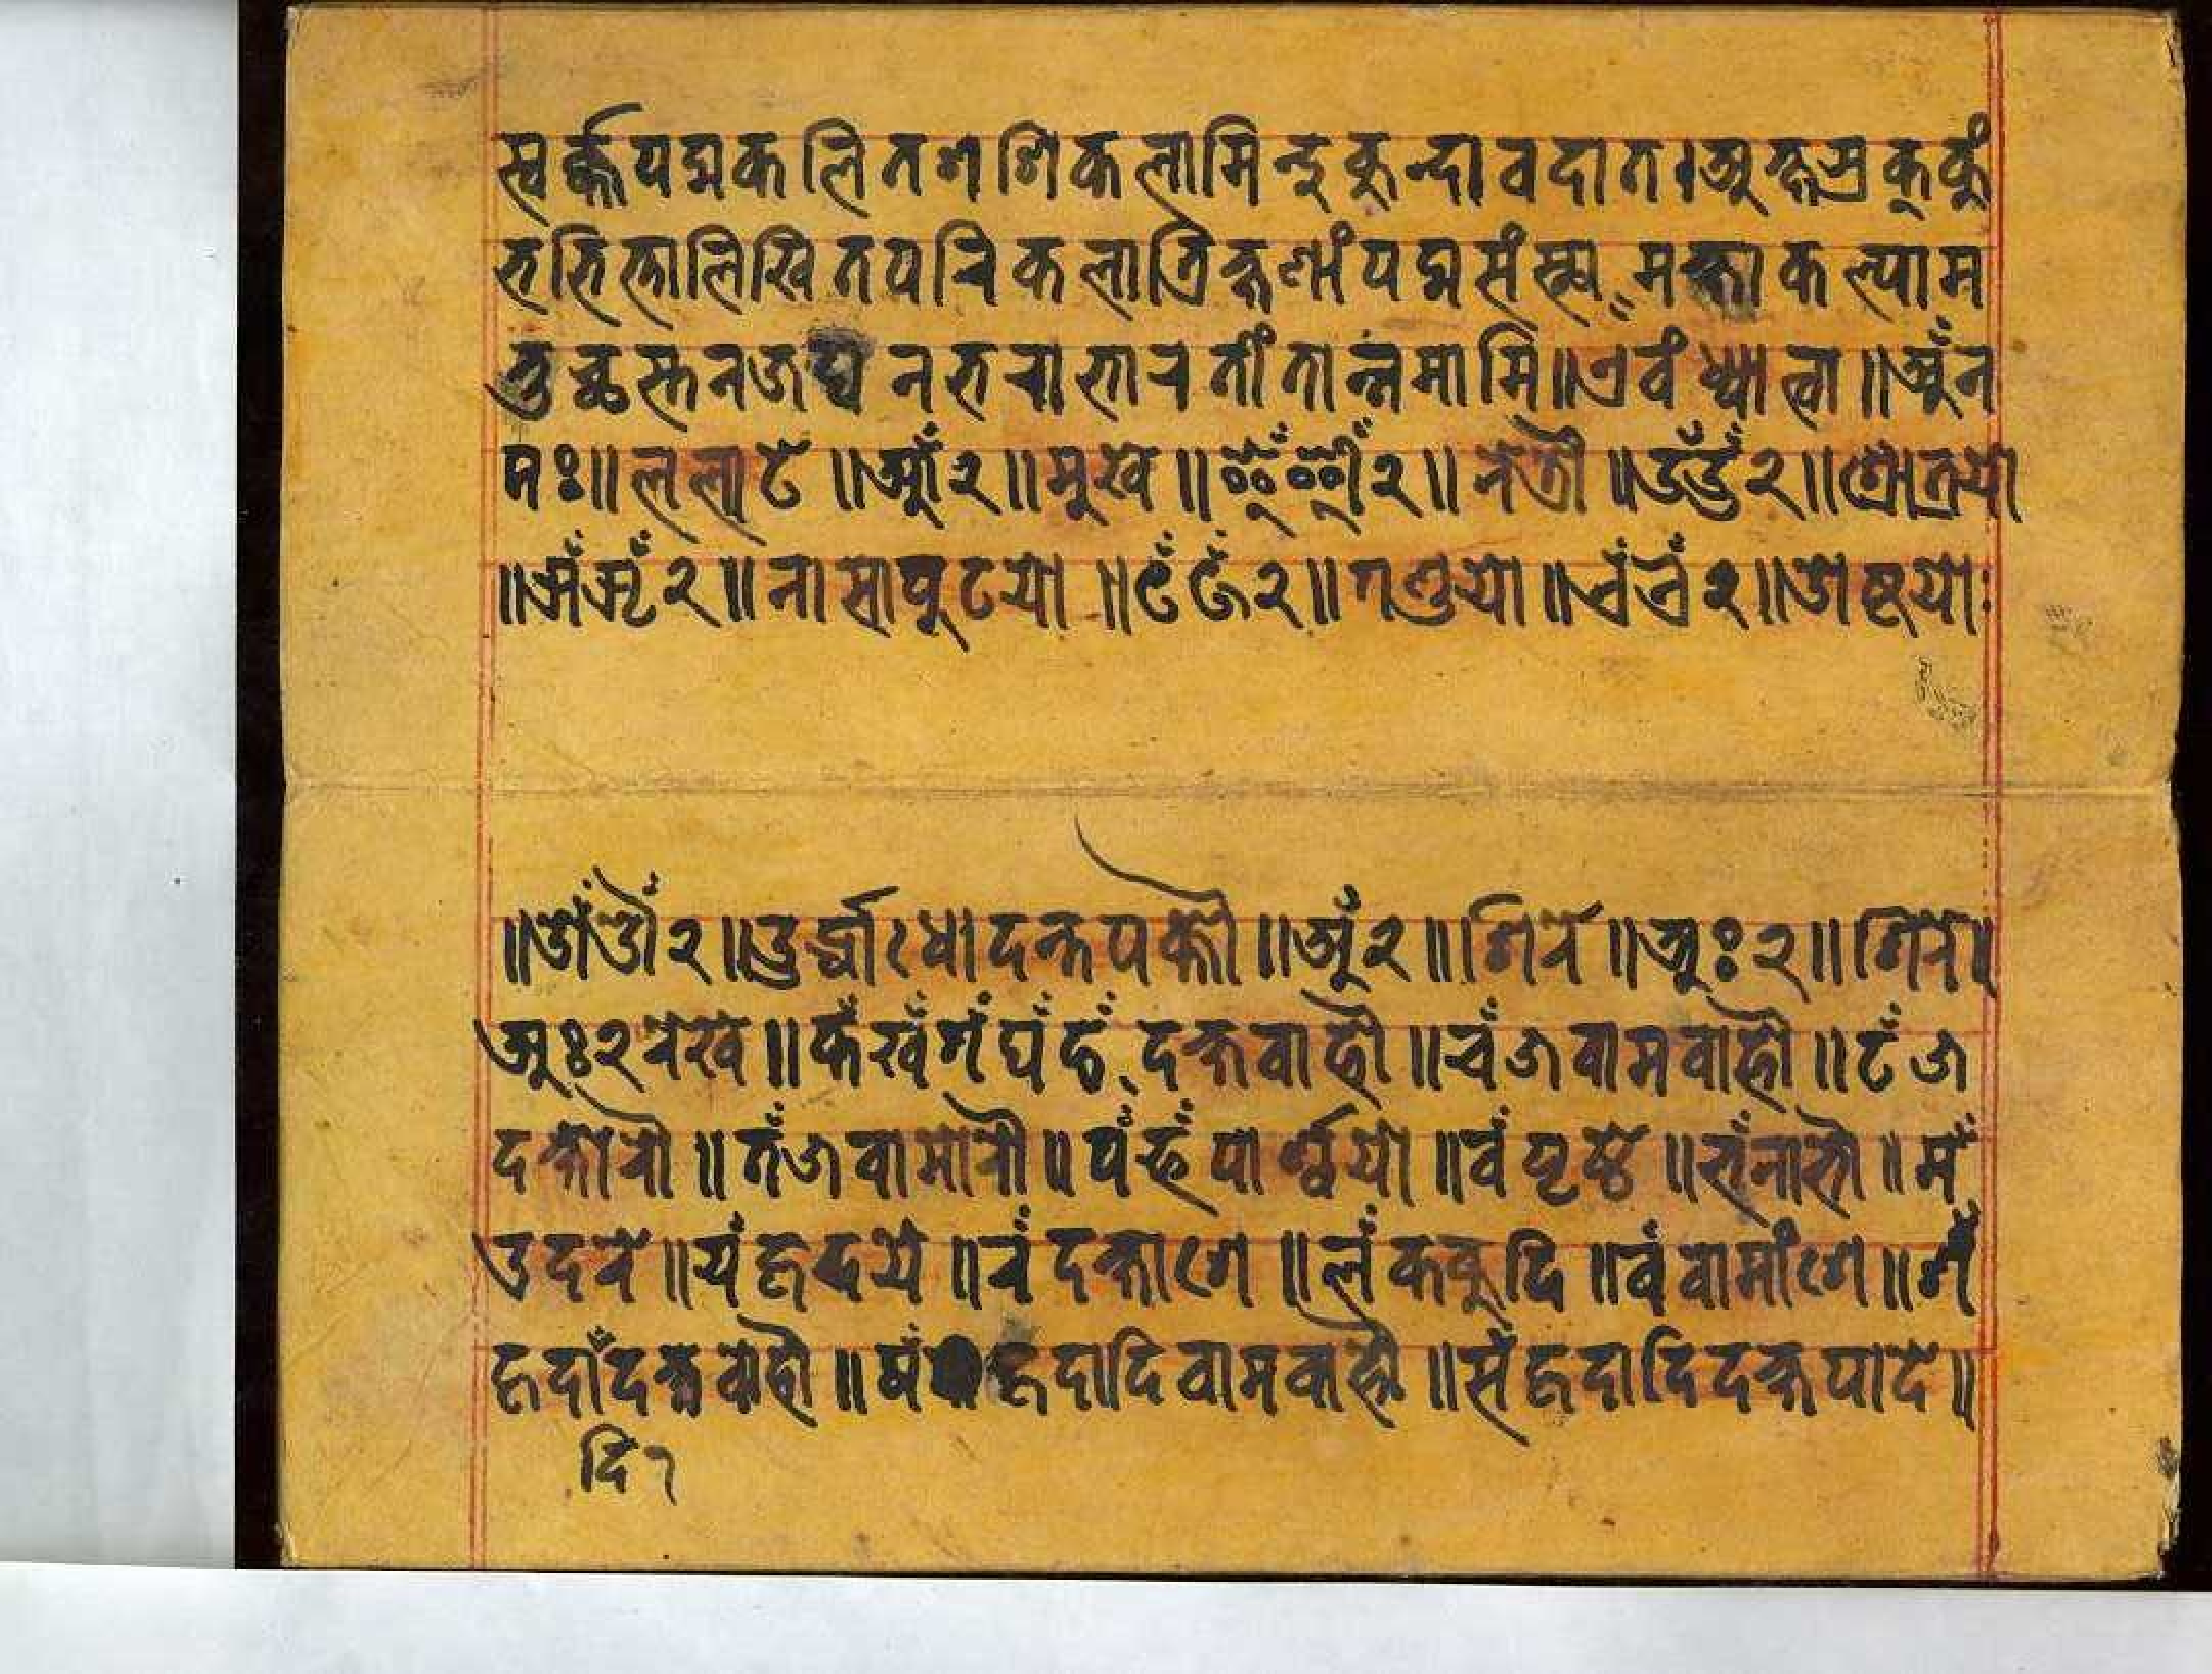 स्वर्क्कपद्मकलितशशिकलामिन्दुकुन्दावदात।अक्षस्रक्कुं
भचिन्तालिखितपरिकलात्रिक्षणांपद्मसंस्था मक्षाकल्पाम
तुच्छस्तनजघनभराभारतींतान्नमामि॥एवंध्यात्वा॥अँन
मः॥ललाटे॥आँ२॥मुखे॥इँईँ२॥नेत्रौ॥उँऊँ२॥श्रोत्रयो
॥ऋँॠँ२॥नासापुटयो॥ऌँॡँ२॥गण्डयो॥एँऐँ२॥ओष्टयोः
॥ओँऔँ२॥उर्द्धाधोदन्तपंक्तौ॥अँ२॥शिरे॥अः२॥शिरे॥
अः२मुखे॥कँखँगँघँङँ दक्षवाहौ॥चँ५वामवाहौ॥टँ५
दक्षोरौ॥तँ५वामोरौ॥पँफँपार्श्वयो॥बँपृष्ठे॥भँनाभौ॥मँ
उदरे॥यँहृदये॥रँदक्षांशे॥लँककुदि॥वँवामांशे॥शँ
हृदाँदक्षवाहौ॥षँ हृदादिवामवाहौ॥सँहृदादिदक्षपादे॥
दि१